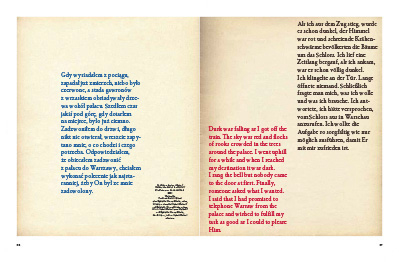 Gdy wysiadałem z pociągu,
zapadał już zmierzch, niebo było
czerwone, a stada gawronów
z wrzaskiem obsiadywały drze-
wa wokół pałacu. Szedłem czas
jakiś pod górę, gdy dotarłem
na miejsce, było już ciemno.
Zadzwoniłem do drzwi, długo
nikt nie otwierał, wreszcie zapy-
tano mnie, o co chodzi i czego
potrzeba. Odpowiedziałem,
że obiecałem zadzwonić
z pałacu do Warszawy, chciałem
wykonać polecenie jak najsta-
ranniej, żeby On był ze mnie
zadowolony.
Dark was falling as I got off the
train. The sky was red and flocks
of rooks crowded in the trees
around the palace. I went uphill
for a while and when I reached
my destination it was dark.
I rang the bell but nobody came
to the door at first. Finally,
someone asked what I wanted.
I said that I had promised to
telephone Warsaw from the
palace and wished to fulfill my
task as good as I could to please
Him.
Als ich aus dem Zug stieg, wurde
es schon dunkel, der Himmel
war rot und schreiende Krähen-
schwärme bevölkerten die Bäume
um das Schloss. Ich lief eine
Zeitlang bergauf, als ich ankam,
war es schon völlig dunkel.
Ich klingelte an der Tür. Lange
öffnete niemand. Schließlich
fragte man mich, was ich wolle
und was ich brauche. Ich ant-
wortete, ich hätte versprochen,
vom Schloss aus in Warschau
anzurufen. Ich wollte die
Aufgabe so sorgfältig wie nur
möglich ausführen, damit Er
mit mir zufrieden ist.